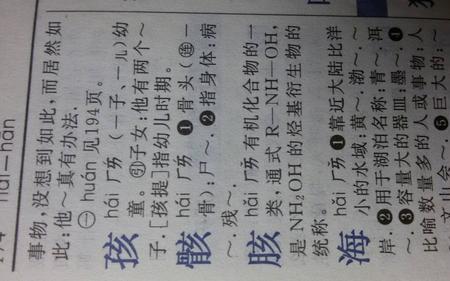 hai—hān
事物,没想到如此,而居然如
此:他~真有办法.
㊀ huán 见194页.
孩 hái ㄏㄞˊ (—子、—儿)幼
童. (引)子女:他有两个~
子. [孩提]指幼儿时期.
骸 hái ㄏㄞˊ ❶骨头(连—
骨):尸~. ❷指身体:病
~. 残~.
胲 hǎi ㄏㄞˇ 有机化合物的一
类,通式 R—NH—OH,
是 NH₂OH 的烃基衍生物的
统称.
海 hǎi ㄏㄞˇ ❶靠近大陆比洋
小的水域:黄~. 渤~. ~
岸. ❷用于湖泊名称:青~. 洱
~. ❸容量大的器皿:墨~. ❹
比喻数量多的人或事物:人
~. 文山会~. ❺巨大的:~